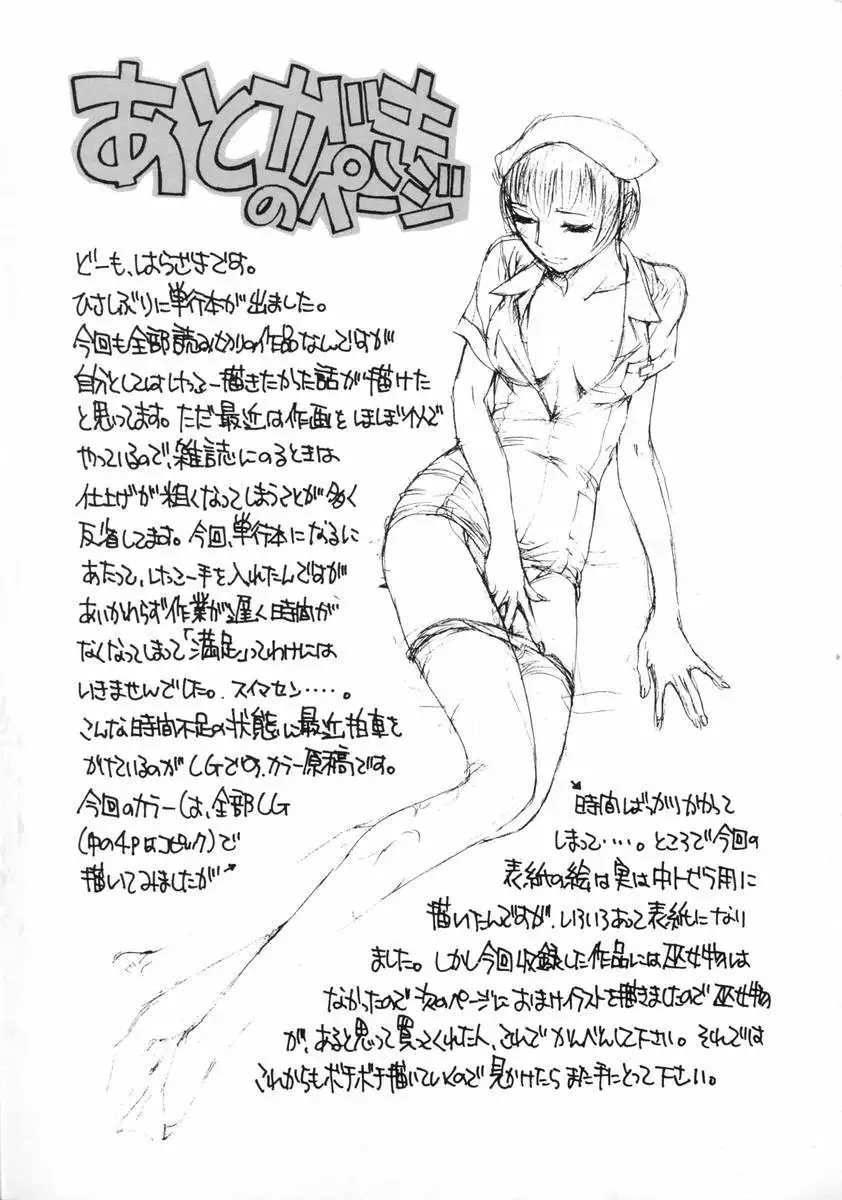 あとがき
のページ
どーも、はらざきです。
ひさしぶりに単行本が出ました。
今回も全部読み切りの作品なんですが
自分としてはけっこー描きたかった話が描けた
と思ってます。ただ最近は作画をほぼ1人で
やっているので、雑誌にのるときは
仕上げが粗くなってしまうことが多く
反省してます。今回、単行本になるに
あたって、けっこー手を入れたんですが
あいかわらず作業が遅く時間が
なくなってしまって「満足」ってわけには
いきませんでした。スイマセン‥‥。
こんな時間不足の状態に最近拍車を
かけているのがCGです、カラー原稿です。
今回のカラーは、全部CG
(中の4Pはコピック)で
描いてみましたが
時間ばっかりかかって
しまって‥‥。ところで今回の
表紙の絵は実は中トビラ用に
描いたんですが、いろいろあって表紙になり
ました。しかし今回収録した作品には巫女物は
なかったので次のページにおまけイラストを描きましたので巫女物
が、あると思って買ってくれた人、これでかんべんして下さい。それでは
これからもボチボチ描いていくので見かけたらまた手にとって下さい。